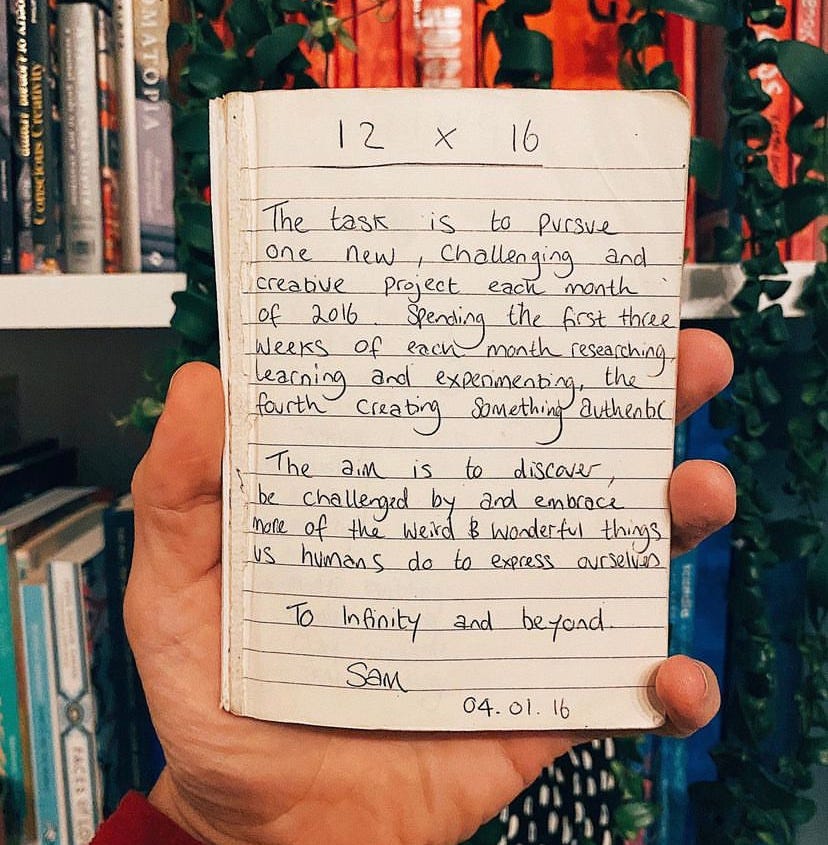 Conscious Creativity
12 x 16
The task is to pursue
one new, challenging and
creative project each month
of 2016. Spending the first three
weeks of each month researching,
learning and experimenting, the
fourth creating something authentic
The aim is to discover,
be challenged by and embrace
more of the weird & wonderful things
us humans do to express ourselves
To Infinity and beyond.
Sam
04.01.16